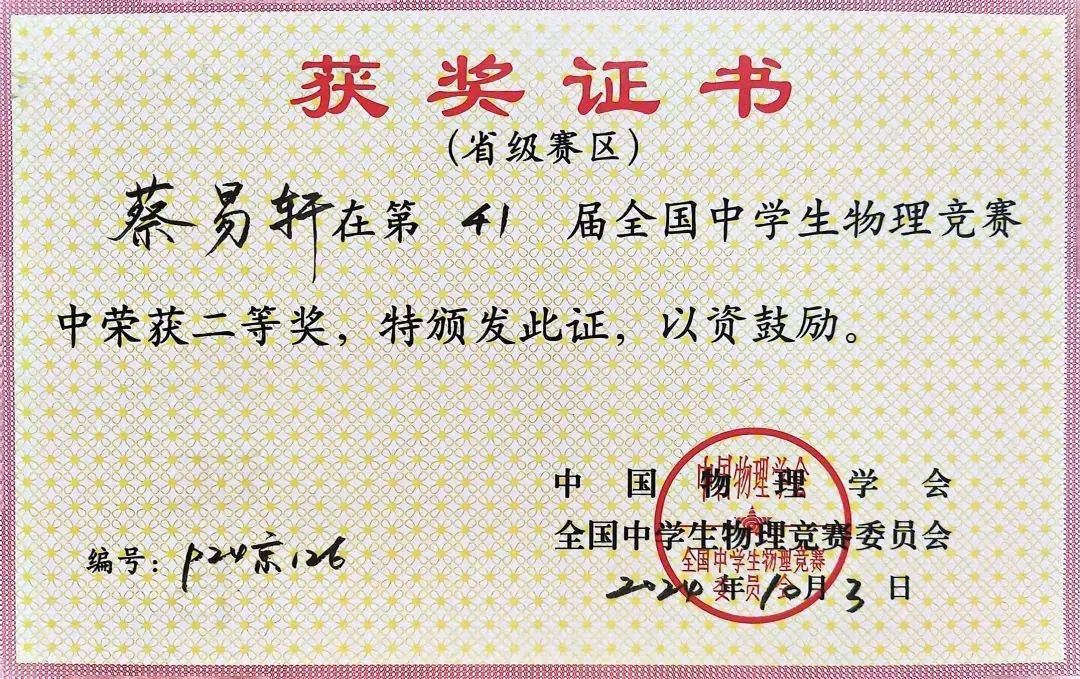 获奖证书
(省级赛区)
蔡易轩在第 41 届全国中学生物理竞赛
中荣获二等奖，特颁发此证，以资鼓励。
中国物理学会
全国中学生物理竞赛委员会
编号：p24京126
2024年10月3日
中国物理学会
全国中学生物理竞赛
委员会